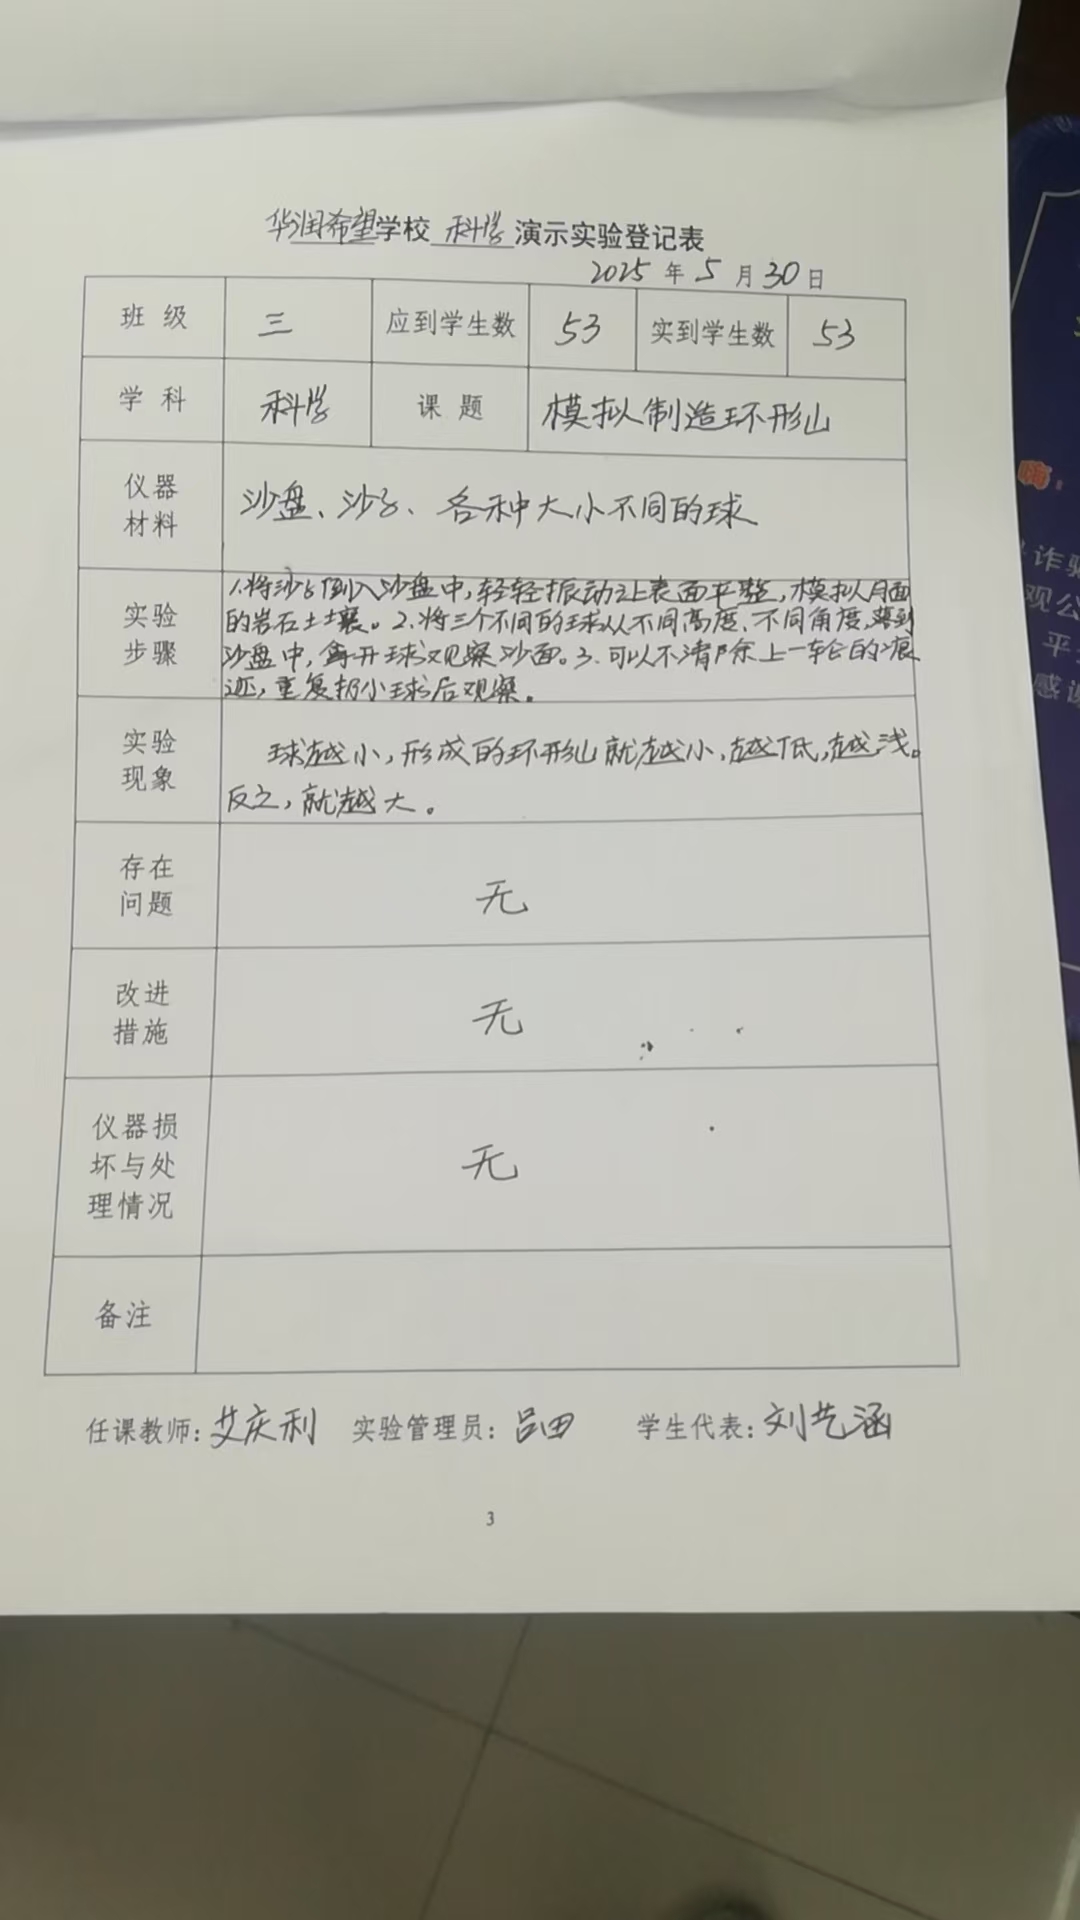 华润希望学校 科学 演示实验登记表
2025 年 5 月 30 日
班 级 三 应到学生数 53 实到学生数 53
学 科 科学 课 题 模拟制造环形山
仪器
材料
沙盘、沙子、各种大小不同的球
实验
步骤
1.将沙子倒入沙盘中,轻轻振动让表面平整,模拟月面
的岩石土壤。2.将三个不同的球从不同高度、不同角度,落到
沙盘中,拿开球观察沙面。3.可以不清除上一轮的痕
迹,重复扔小球后观察。
实验
现象
球越小,形成的环形山就越小,越低,越浅。
反之,就越大。
存在
问题
无
改进
措施
无
仪器损
坏与处
理情况
无
备注
任课教师: 艾庆利 实验管理员: 吕田 学生代表: 刘艺涵
3
嗨
诈骗
观公
平
感谢